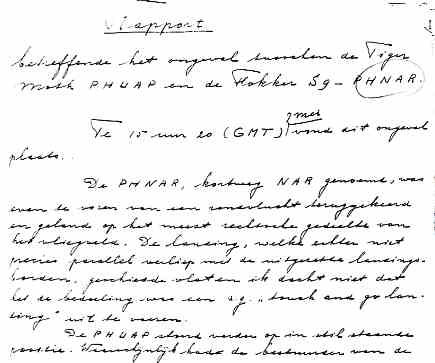 Rapport
betreffende het ongeval tusschen de Tiger
Moth PHUAP en de Fokker Sg - PHNAR.
Te 15 uur 20 (GMT) 2 mei vond dit ongeval
plaats.
De PHNAR, kortweg NAR genoemd, was
even te voren van een rondvlucht teruggekeerd
en geland op het meest rechtsche gedeelte van
het vliegveld. De landing, welke echter niet
precies parallel verliep met de uitgezette landings-
borden, geschiedde vlot en ik dacht niet dat
het de bedoeling was een z.g. „touch and go lan-
ding" uit te voeren.
De PHUAP stond verder op in stil staande
positie. Waarschijnlijk had de bestuurder van de